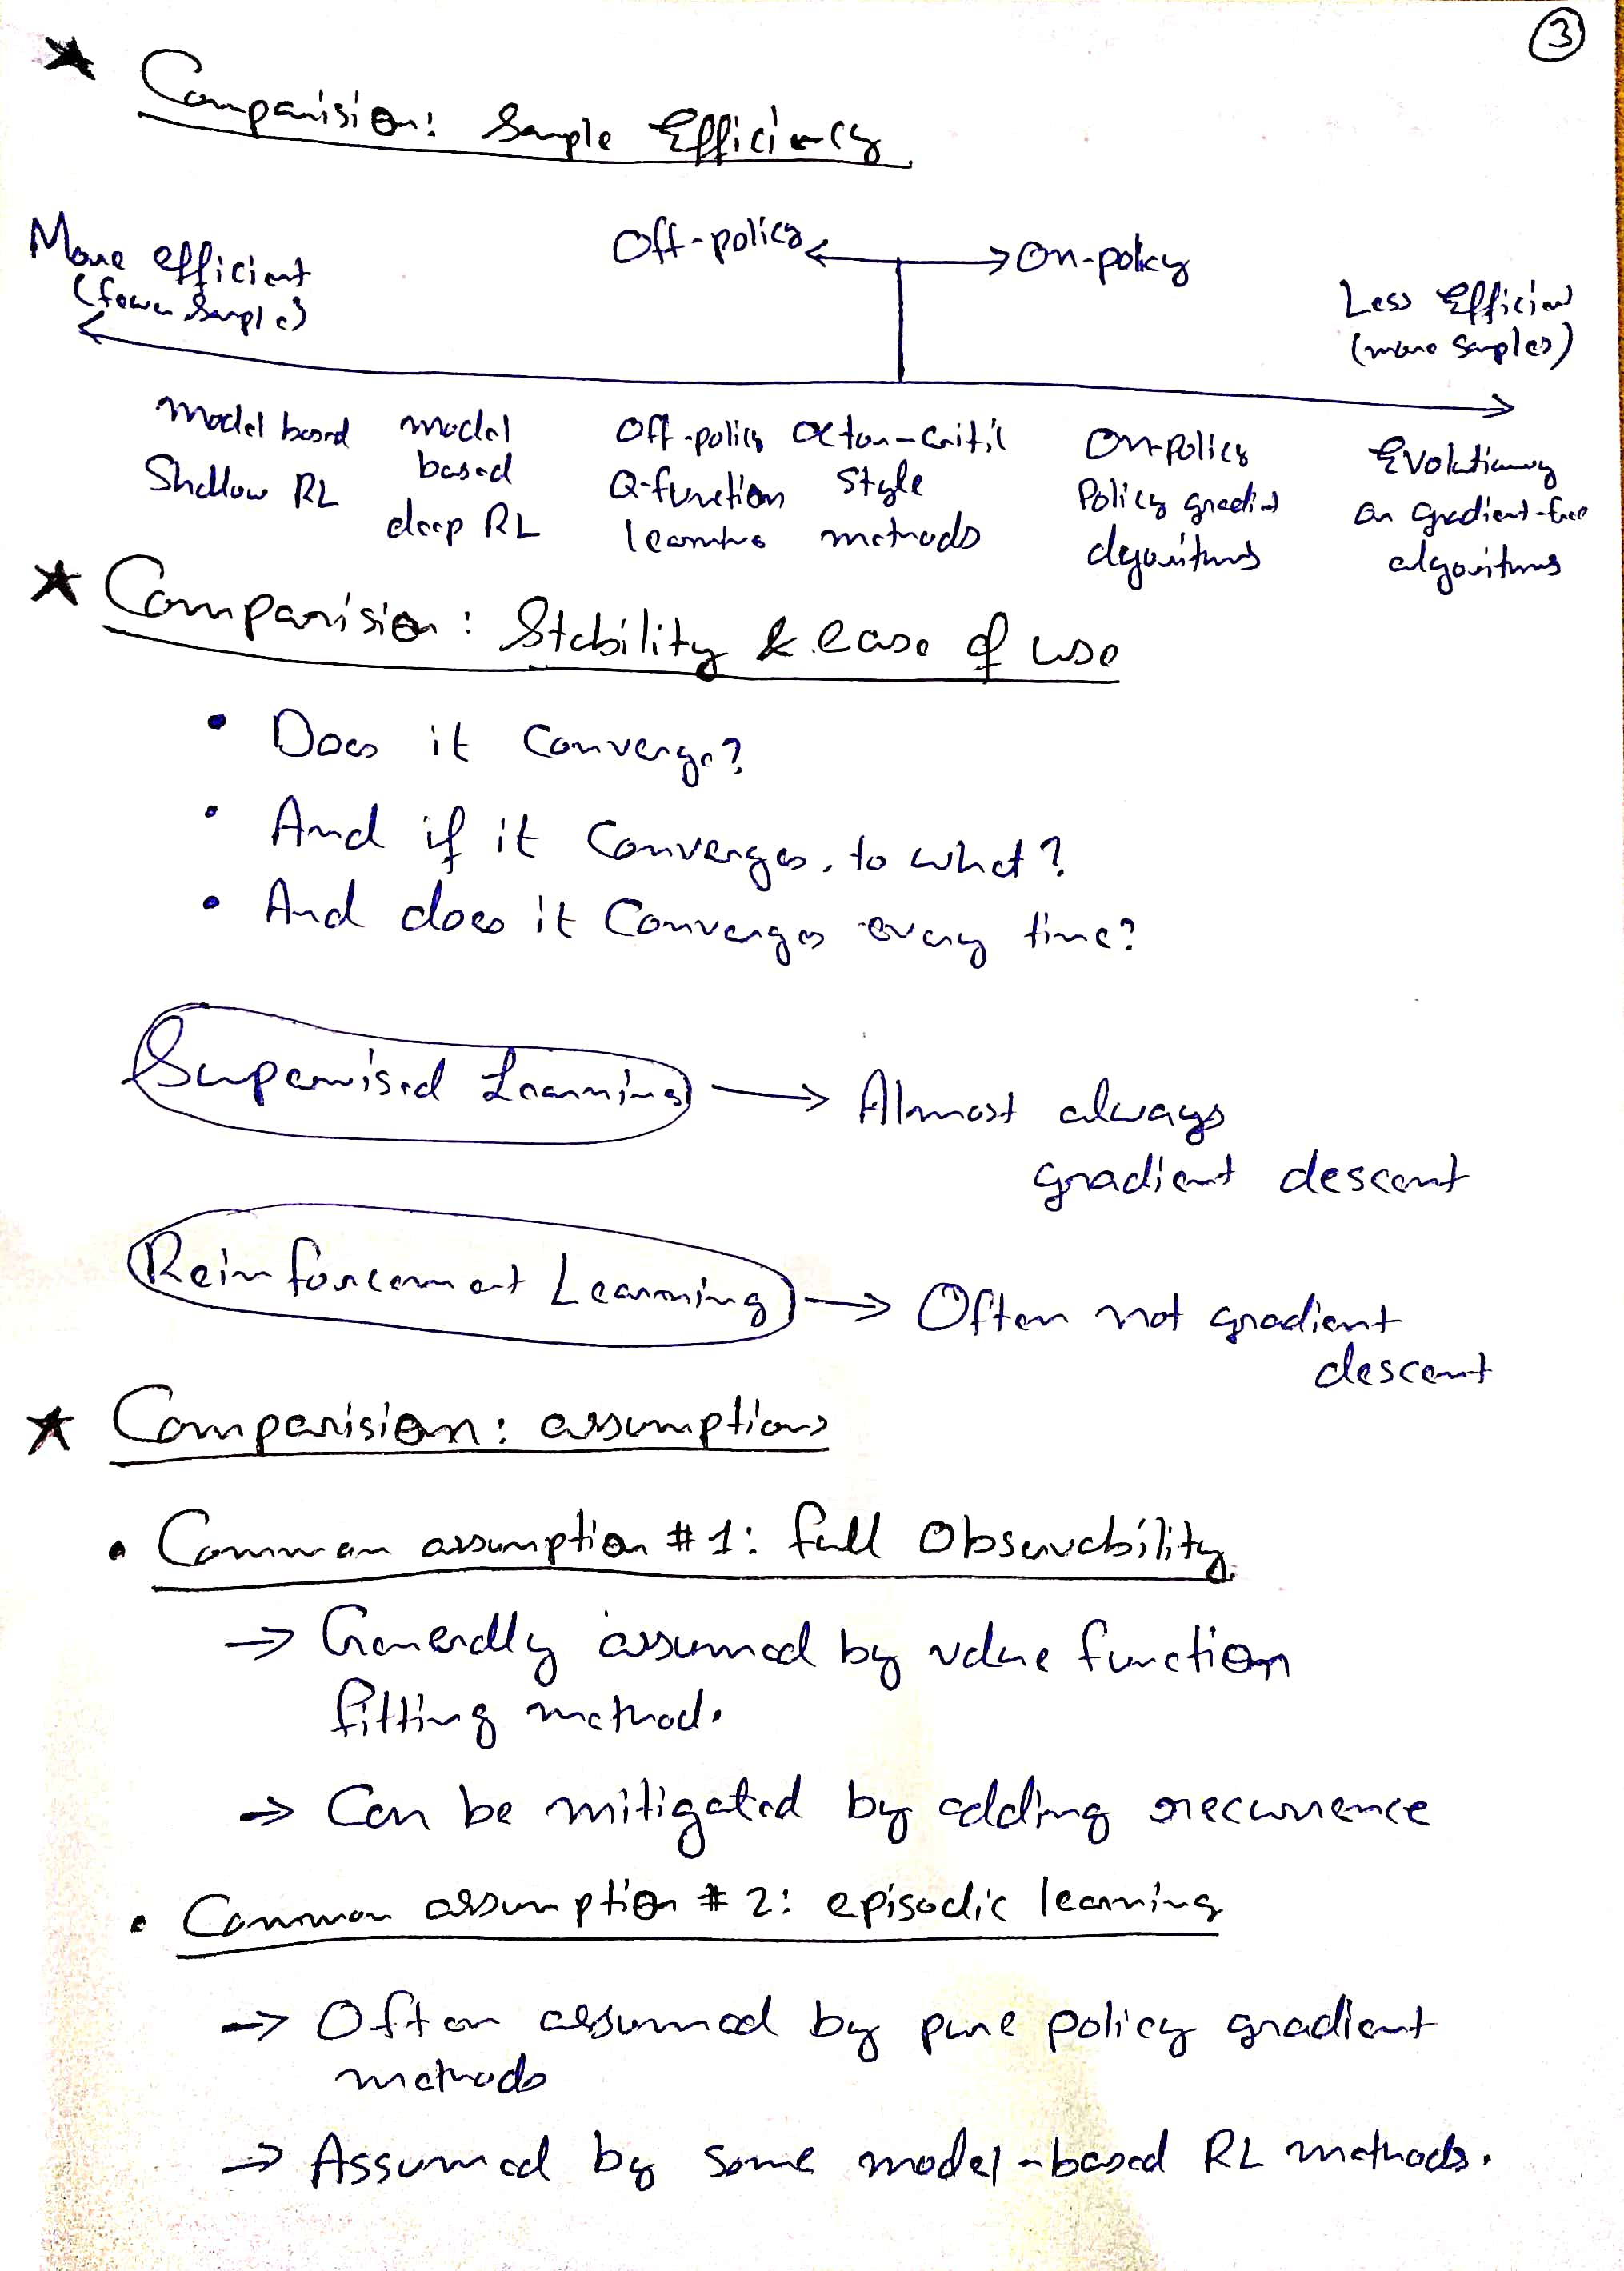 3
★ Comparision: Sample Efficiency
Off-policy ← → On-policy
More efficient
(fewer samples)
Less Efficient
(more samples)
Model based
Shallow RL
model
based
deep RL
Off-policy
Q-function
learning
actor-critic
style
methods
On-policy
Policy gradient
algorithms
Evolutionary
or gradient-free
algorithms
★ Comparision: Stability & ease of use
• Does it converge?
• And if it converges, to what?
• And does it converges every time?
Supervised Learning → Almost always
gradient descent
Reinforcement Learning → Often not gradient
descent
★ Comparision: assumptions
• Common assumption #1: full Observability
→ Generally assumed by value function
fitting method.
→ Can be mitigated by adding recurrence
• Common assumption #2: episodic learning
→ Often assumed by pure policy gradient
methods
→ Assumed by some model-based RL methods.